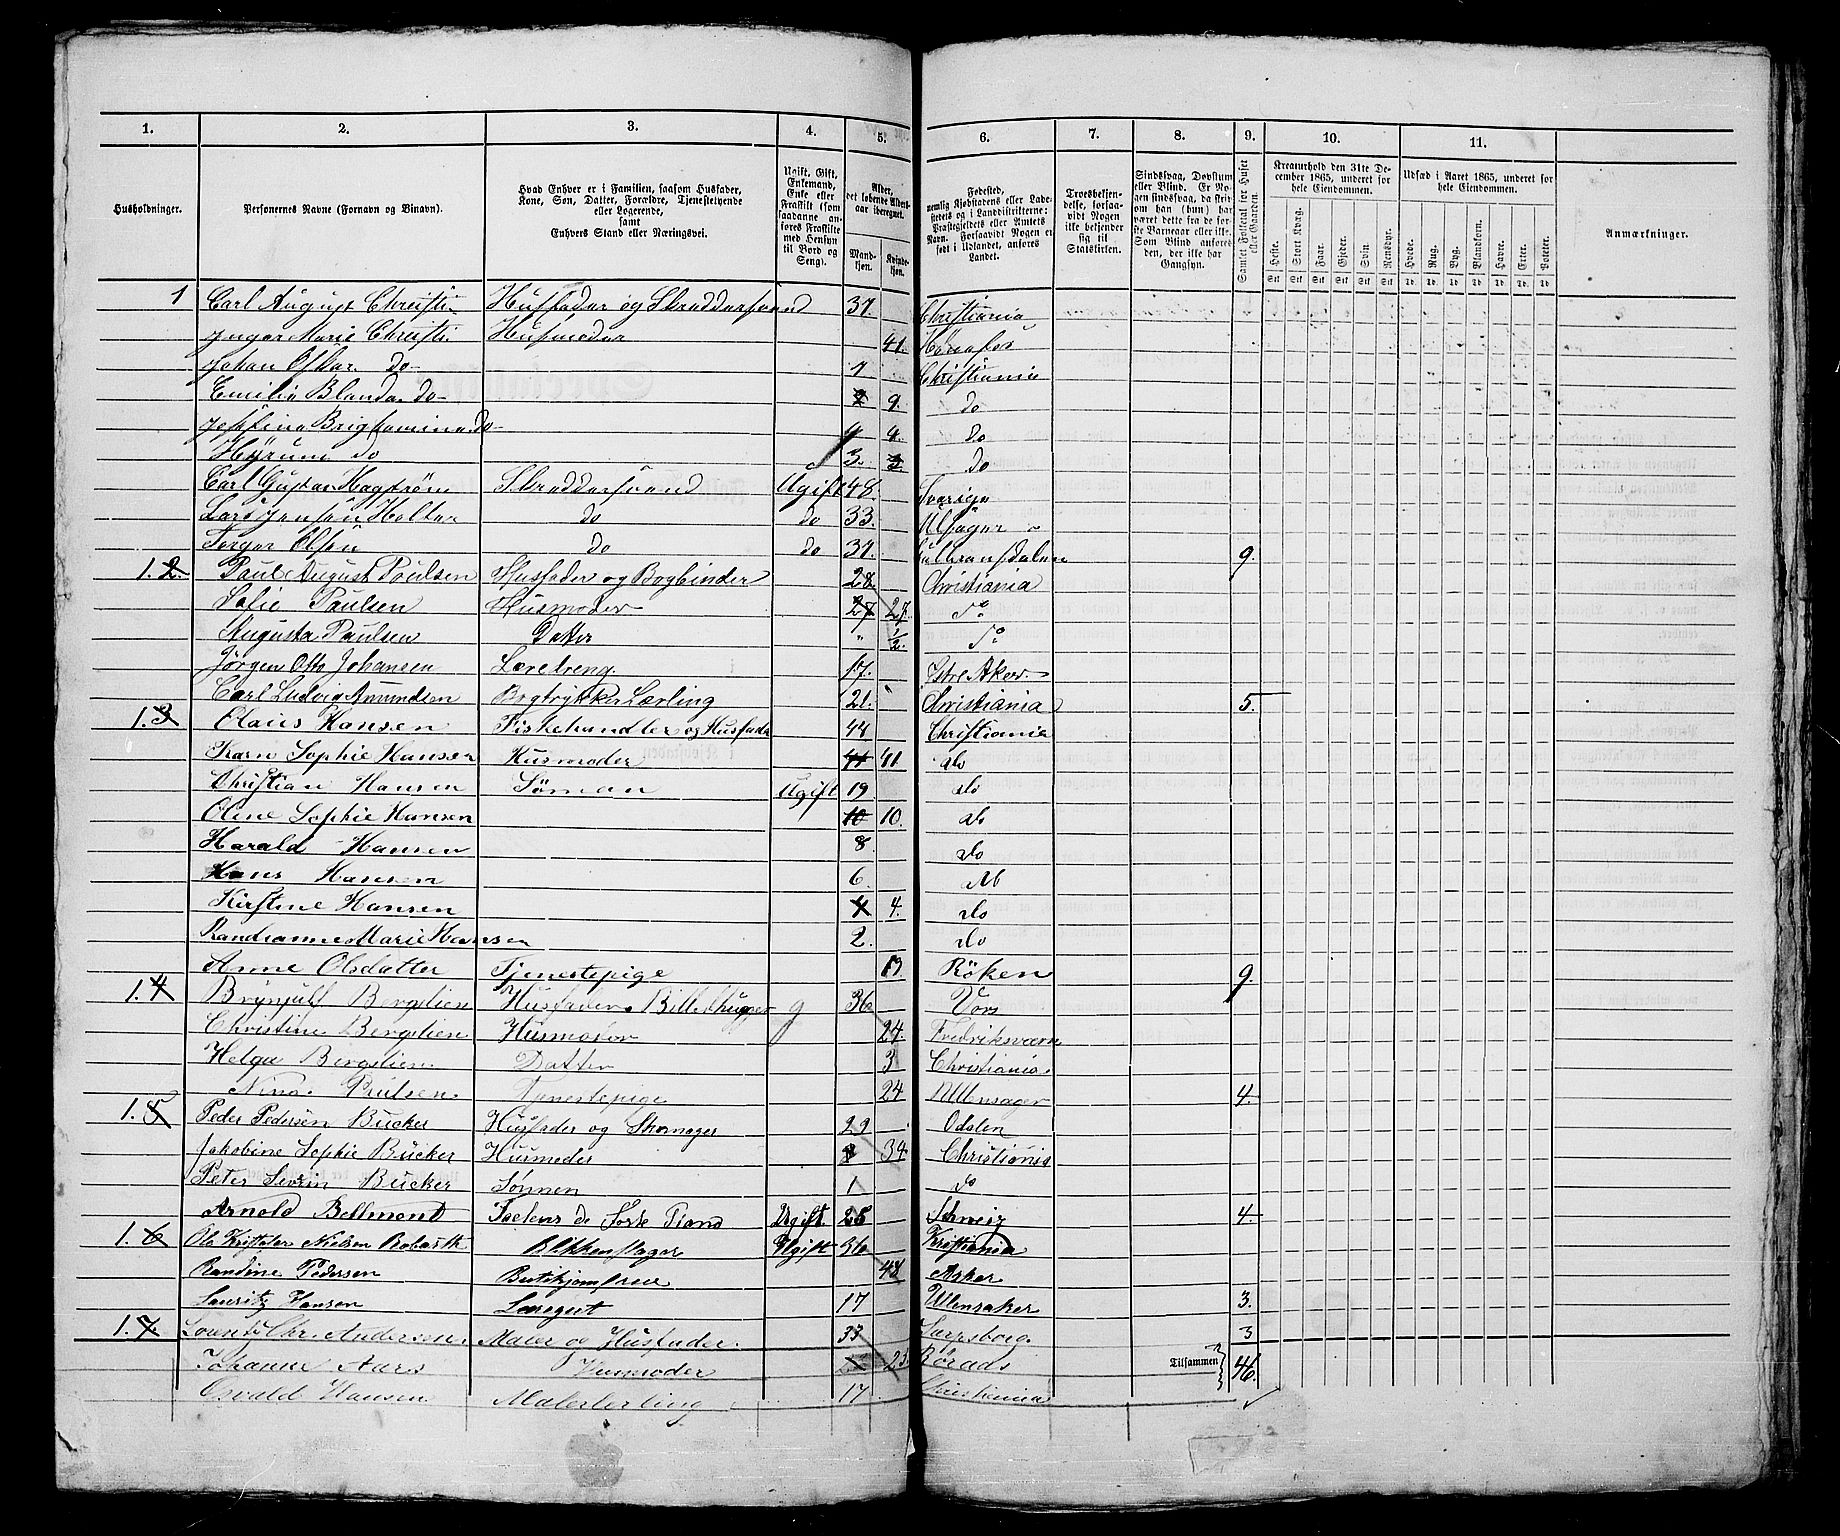 1. 2. 3. 4. 5. 6. 7. 8. 9. 10. 11.
Husholdninger.
Personernes Navne (Fornavn og Binavn).
Hvad Enhver er i Familien, saasom Husfader, Kone, Søn, Datter, Forældre, Tjenestetyende eller Logerende, samt Enhvers Stand eller Næringsvei.
Ugift, Gift, Enkemand, Enke eller Fraskilt (som saadanne anføres Fraskilte med Hensyn til Bord og Seng).
Alder, det løbende Aldersaar iberegnet.
Mandkjøn. Kvindekjøn.
Fødested, nemlig Kjøbstadens eller Ladestedets og i Landdistrikterne: Præstegjeldets eller Amtets Navn. Forsaavidt Nogen er født i Udlandet, anføres Landet.
Troesbekjendelse, forsaavidt Nogen ikke bekjender sig til Statskirken.
Sindssvag, Døvstum eller Blind. Er Nogen sindssvag, da skrives om han (hun) har været dette fra de første Barneaar eller ikke. Som Blind anføres den, der ikke har Gangsyn.
Samlet Folketal for Huset eller Gaarden.
Kreaturhold den 31te December 1865, underet for hele Eiendommen.
Heste. Stort Kvæg. Faar. Gjeder. Svin. Rensdyr.
Udsæd i Aaret 1865, underet for hele Eiendommen.
Hvede. Rug. Byg. Blandkorn. Havre. Erter. Poteter.
Anmærkninger.
1 Carl August Christi Husfader og Skreddersvend 37. Christiania
Inger Marie Christi Husmoder 41. Hønefos
Johan Oskar do 7 Christiania
Emilie Blanda do 9. do
Josefine do 4. do
Hyrum do 3. do
Carl Gustav Hagstrøm Skreddersvend Ugift 48. Sverige
Lars Jensen Holter do do 33.
Torger Olsen do do 37. Gulbransdalen 9.
1.2. Paul August Paulsen Husfader og Bogbinder 28. Christiania
Sofie Paulsen Husmoder 27 27. Do
Augusta Paulsen Datter " 1/2. Do
Jörgen Otto Johansen Læredreng. 17. Østre Aker
Carl Ludvig Amundsen Bogtrykker Lærling 21. Christiania 5.
1.3 Olaus Hansen Fiskehandler og Husfader 48 Christiania
Karn Sophie Hansen Husmoder 41 41. do
Christian Hansen Söman Ugift 19 do
Oline Sophie Hansen 10 10. do
Harald Hansen 8 do
Hans Hansen 6. do
Kirstine Hansen 4 4. do
Randianne Marie Hansen 2. do
Anne Olsdatter Tjenestepige 13. Röken 9.
1.4 Brynjulf Bergslien Husfader Billedhugger g 36 Vors
Christine Bergslien Husmoder 24. Fredriksværn
Helga Bergslien Datter 3 Christiania.
Nina Paulsen Tjenestepige 24 Ullensager 4.
1.5 Peder Pedersen Bücker Husfader og Skomager 29 Odalen
Jakobine Sophie Bücker Husmoder 34 Christiania
Peter Sevrin Bücker Sönnen 1 do
Arnold Bellmont Ugift. 25 Schweiz 4.
1.6 Ole Nielsen Blikkenslager Ugift 36 Kristiania
Randine Pedersen Butikjomfrue 48 Asker
Lauritz Hansen Læregut 17 Ullensaker 3.
1.7. Lorents Chr. Andersen Maler og Husfader. 33 Sarpsborg. 3
Johanne Aars Husmoder 25 Tilsammen 46.
Osvald Hansen Malerlerling 17 Christiania